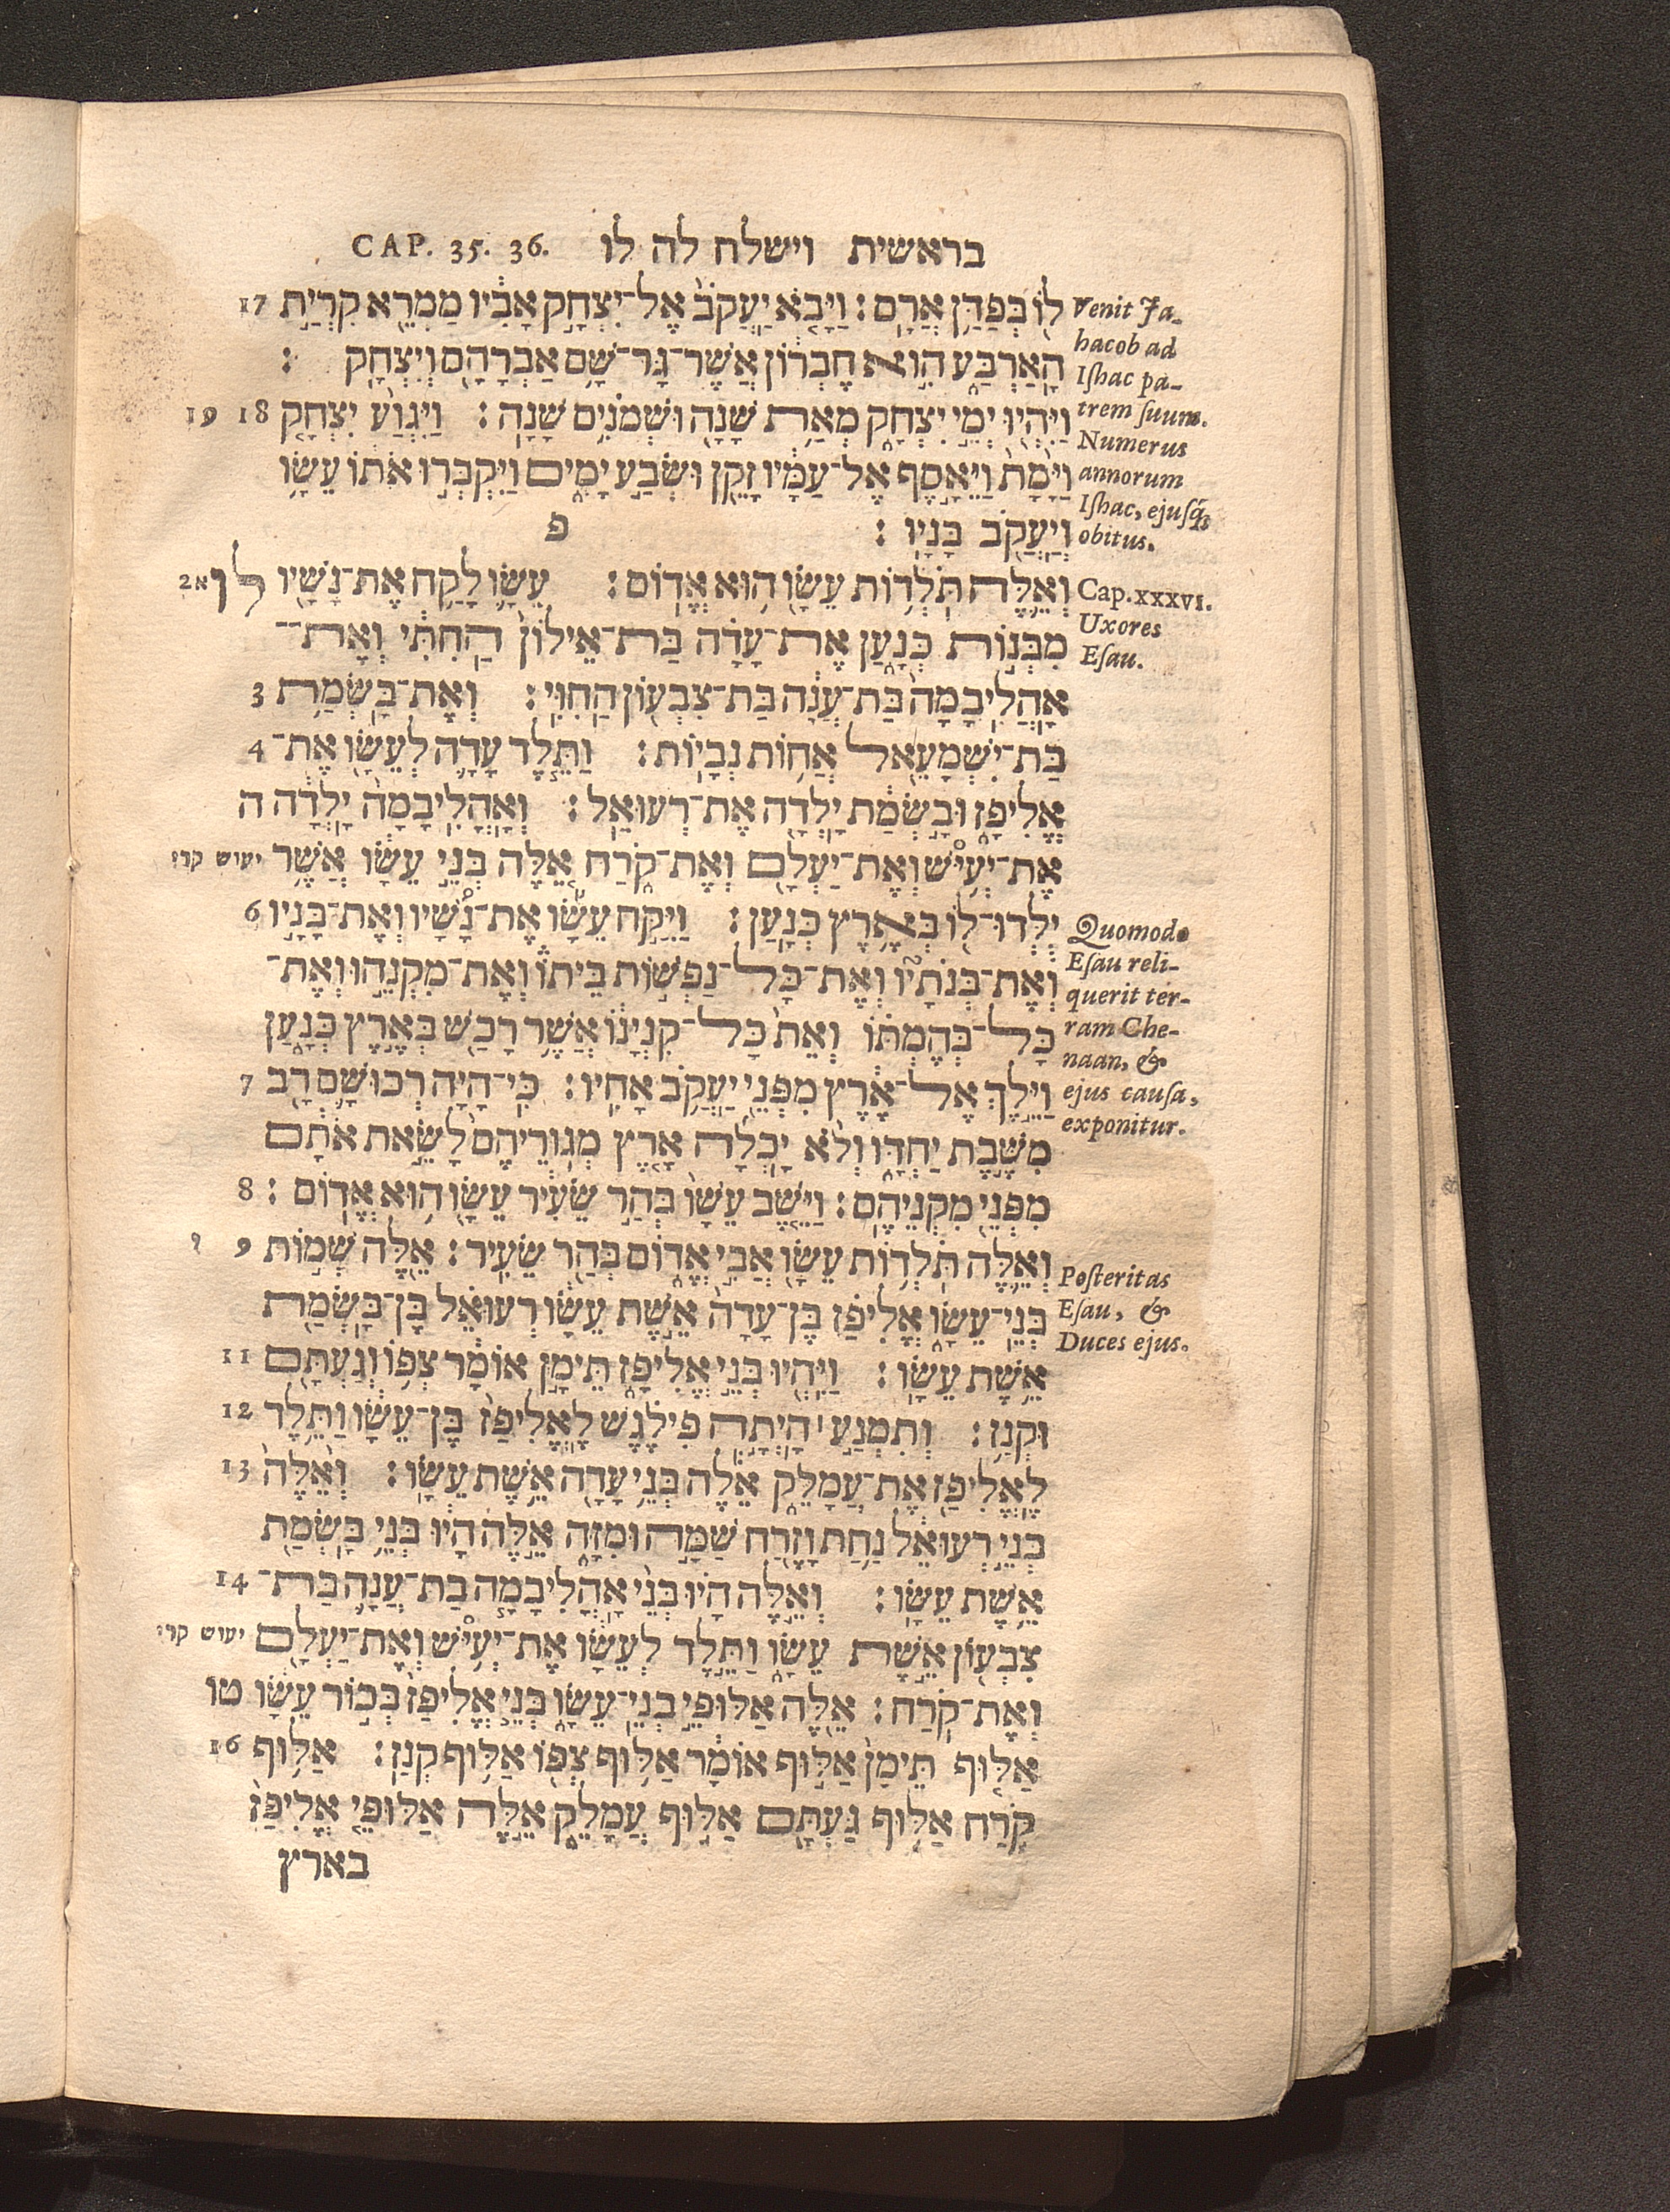 בראשית וישלח לה לו CAP. 35. 36.
לוֹ בְּפַדַּן אֲרָם׃ וַיָּבֹא יַעֲקֹב אֶל־יִצְחָק אָבִיו מַמְרֵא קִרְיַת 17
הָאַרְבַּע הִוא חֶבְרוֹן אֲשֶׁר־גָּר־שָׁם אַבְרָהָם וְיִצְחָק ׃
וַיִּהְיוּ יְמֵי יִצְחָק מְאַת שָׁנָה וּשְׁמֹנִים שָׁנָה׃ וַיִּגְוַע יִצְחָק 18 19
וַיָּמָת וַיֵּאָסֶף אֶל־עַמָּיו זָקֵן וּשְׂבַע יָמִים וַיִּקְבְּרוּ אֹתוֹ עֵשָׂו
וְיַעֲקֹב בָּנָיו ׃ פ
וְאֵלֶּה תֹּלְדוֹת עֵשָׂו הוּא אֱדוֹם׃ עֵשָׂו לָקַח אֶת־נָשָׁיו לו א2
מִבְּנוֹת כְּנָעַן אֶת־עָדָה בַּת־אֵילוֹן הַחִתִּי וְאֶת־־
אָהֳלִיבָמָה בַּת־עֲנָה בַּת־צִבְעוֹן הַחִוִּי׃ וְאֶת־בָּשְׂמַת 3
בַּת־יִשְׁמָעֵאל אֲחוֹת נְבָיוֹת׃ וַתֵּלֶד עָדָה לְעֵשָׂו אֶת־ 4
אֱלִיפָז וּבָשְׂמַת יָלְדָה אֶת־רְעוּאֵל׃ וְאָהֳלִיבָמָה יָלְדָה ה
אֶת־יְעִישׁ וְאֶת־יַעְלָם וְאֶת־קֹרַח אֵלֶּה בְּנֵי עֵשָׂו אֲשֶׁר יעוש קרי
יֻלְּדוּ־לוֹ בְּאֶרֶץ כְּנָעַן׃ וַיִּקַּח עֵשָׂו אֶת־נָשָׁיו וְאֶת־בָּנָיו 6
וְאֶת־בְּנֹתָיו וְאֶת־כָּל־נַפְשׁוֹת בֵּיתוֹ וְאֶת־מִקְנֵהוּ וְאֶת־
כָּל־בְּהֶמְתּוֹ וְאֵת כָּל־קִנְיָנוֹ אֲשֶׁר רָכַשׁ בְּאֶרֶץ כְּנָעַן
וַיֵּלֶךְ אֶל־אֶרֶץ מִפְּנֵי יַעֲקֹב אָחִיו׃ כִּי־הָיָה רְכוּשָׁם רָב 7
מִשֶּׁבֶת יַחְדָּו וְלֹא יָכְלָה אֶרֶץ מְגוּרֵיהֶם לָשֵׂאת אֹתָם
מִפְּנֵי מִקְנֵיהֶם׃ וַיֵּשֶׁב עֵשָׂו בְּהַר שֵׂעִיר עֵשָׂו הוּא אֱדוֹם ׃ 8
וְאֵלֶּה תֹּלְדוֹת עֵשָׂו אֲבִי אֱדוֹם בְּהַר שֵׂעִיר׃ אֵלֶּה שְׁמוֹת 9
בְּנֵי־עֵשָׂו אֱלִיפַז בֶּן־עָדָה אֵשֶׁת עֵשָׂו רְעוּאֵל בֶּן־בָּשְׂמַת
אֵשֶׁת עֵשָׂו׃ וַיִּהְיוּ בְּנֵי אֱלִיפָז תֵּימָן אוֹמָר צְפוֹ וְגַעְתָּם 11
וּקְנַז׃ וְתִמְנַע׀ הָיְתָה פִילֶגֶשׁ לֶאֱלִיפַז בֶּן־עֵשָׂו וַתֵּלֶד 12
לֶאֱלִיפַז אֶת־עֲמָלֵק אֵלֶּה בְּנֵי עָדָה אֵשֶׁת עֵשָׂו׃ וְאֵלֶּה 13
בְּנֵי רְעוּאֵל נַחַת וָזֶרַח שַׁמָּה וּמִזָּה אֵלֶּה הָיוּ בְּנֵי בָשְׂמַת
אֵשֶׁת עֵשָׂו׃ וְאֵלֶּה הָיוּ בְּנֵי אָהֳלִיבָמָה בַת־עֲנָה בַּת־ 14
צִבְעוֹן אֵשֶׁת עֵשָׂו וַתֵּלֶד לְעֵשָׂו אֶת־יְעִישׁ וְאֶת־יַעְלָם יעוש קרי
וְאֶת־קֹרַח׃ אֵלֶּה אַלּוּפֵי בְנֵי־עֵשָׂו בְּנֵי אֱלִיפַז בְּכוֹר עֵשָׂו טו
אַלּוּף תֵּימָן אַלּוּף אוֹמָר אַלּוּף צְפוֹ אַלּוּף קְנַז׃ אַלּוּף 16
קֹרַח אַלּוּף גַּעְתָּם אַלּוּף עֲמָלֵק אֵלֶּה אַלּוּפֵי אֱלִיפַז
בארץ
Venit Ja-
hacob ad
Ishac pa-
trem suum.
Numerus
annorum
Ishac, ejusq́;
obitus.
Cap. XXXVI.
Uxores
Esau.
Quomodo
Esau reli-
querit ter-
ram Che-
naan, &
ejus causa,
exponitur.
Posteritas
Esau, &
Duces ejus.